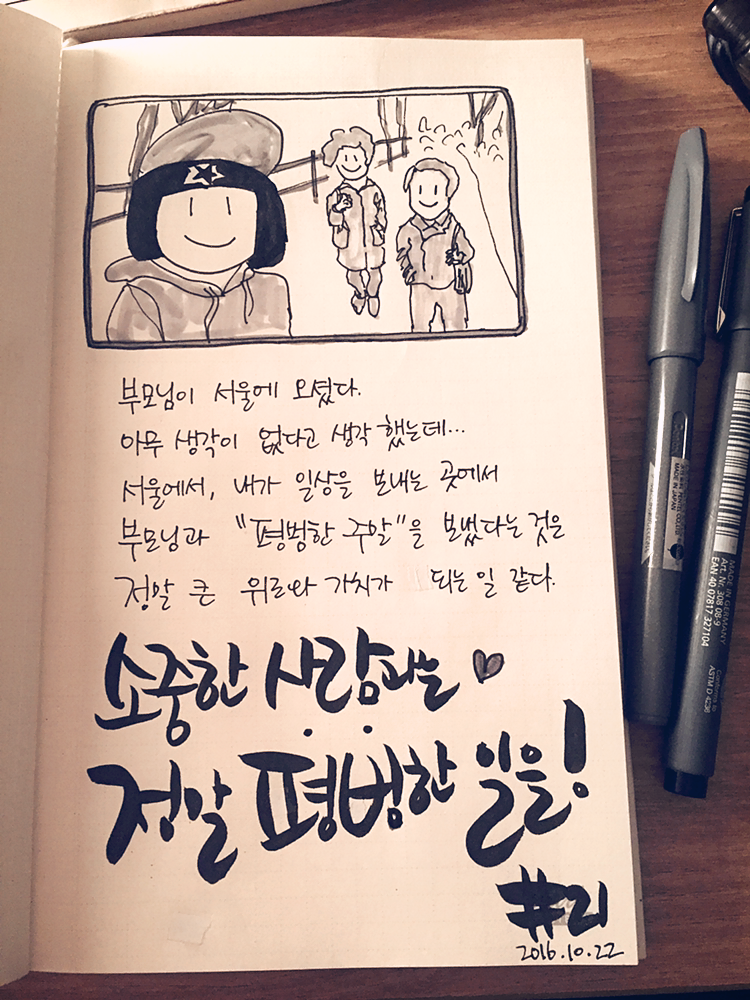 부모님이 서울에 오셨다.
아무 생각이 없다고 생각 했는데...
서울에서, 내가 일상을 보내는 곳에서
부모님과 "평범한 주말"을 보냈다는 것은
정말 큰 위로와 가치가 되는 일 같다.
소중한 사람과는
정말 평범한 일을!
#21
2016.10.22
MADE IN JAPAN
MADE IN GERMANY
Art. Nr. 308 08-9
EAN 40 07817 327104
Conforms to
ASTM D 4236